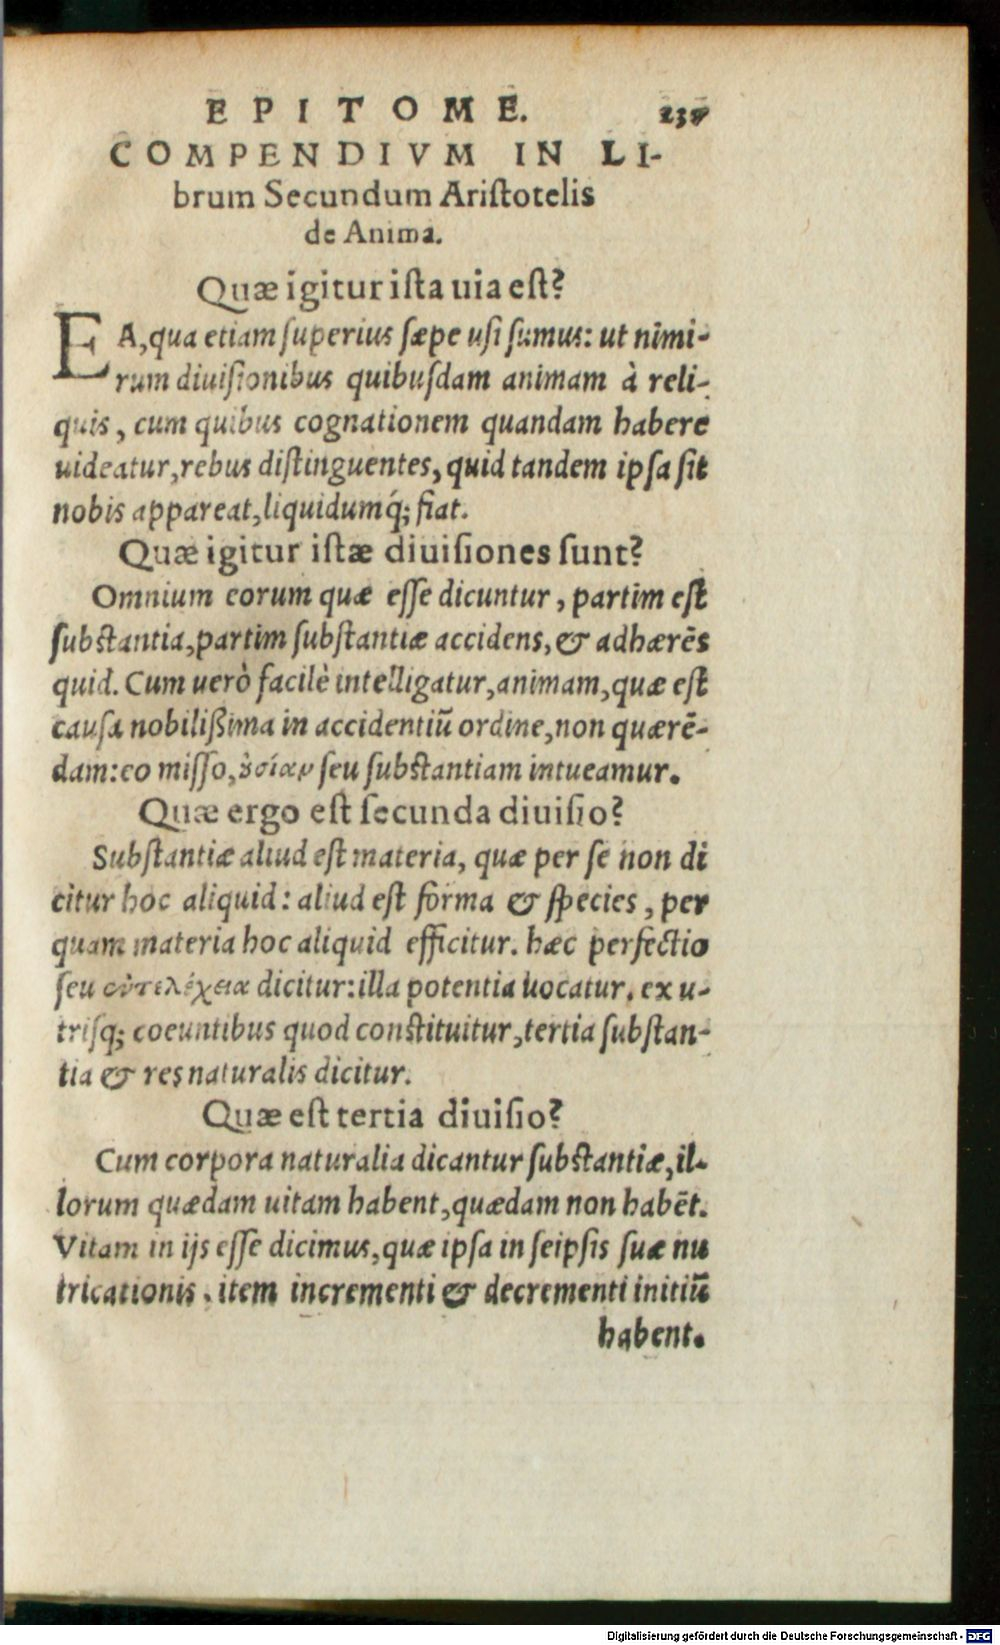 EPITOME.
COMPENDIVM IN LI-
brum Secundum Ariſtotelis
de Anima.
Quæ igitur iſta uia eſt?
EA, qua etiam ſuperius ſæpe uſi ſumus: ut nimi-
rum diuiſionibus quibuſdam animam à reli-
quis, cum quibus cognationem quandam habere
uideatur, rebus diſtinguentes, quid tandem ipſa ſit
nobis appareat, liquidumq́; fiat.
Quæ igitur iſtæ diuiſiones ſunt?
Omnium eorum quæ eſſe dicuntur, partim eſt
ſubſtantia, partim ſubſtantiæ accidens, & adhærẽs
quid. Cum uerò facilè intelligatur, animam, quæ eſt
cauſa nobilißima in accidentiũ ordine, non quærẽ-
dam: eo miſſo, ȣ̓σίαν ſeu ſubſtantiam intueamur.
Quæ ergo eſt ſecunda diuiſio?
Subſtantiæ aliud eſt materia, quæ per ſe non di
citur hoc aliquid: aliud eſt forma & ſpecies, per
quam materia hoc aliquid efficitur. hæc perfectio
ſeu ἐντελέχεια dicitur: illa potentia uocatur. ex u-
triſq; coeuntibus quod conſtituitur, tertia ſubſtan-
tia & res naturalis dicitur.
Quæ eſt tertia diuiſio?
Cum corpora naturalia dicantur ſubſtantiæ, il-
lorum quædam uitam habent, quædam non habẽt.
Vitam in ijs eſſe dicimus, quæ ipſa in ſeipſis ſuæ nu
tricationis, item incrementi & decrementi initiũ
habent.
Digitalisierung gefördert durch die Deutsche Forschungsgemeinschaft - DFG